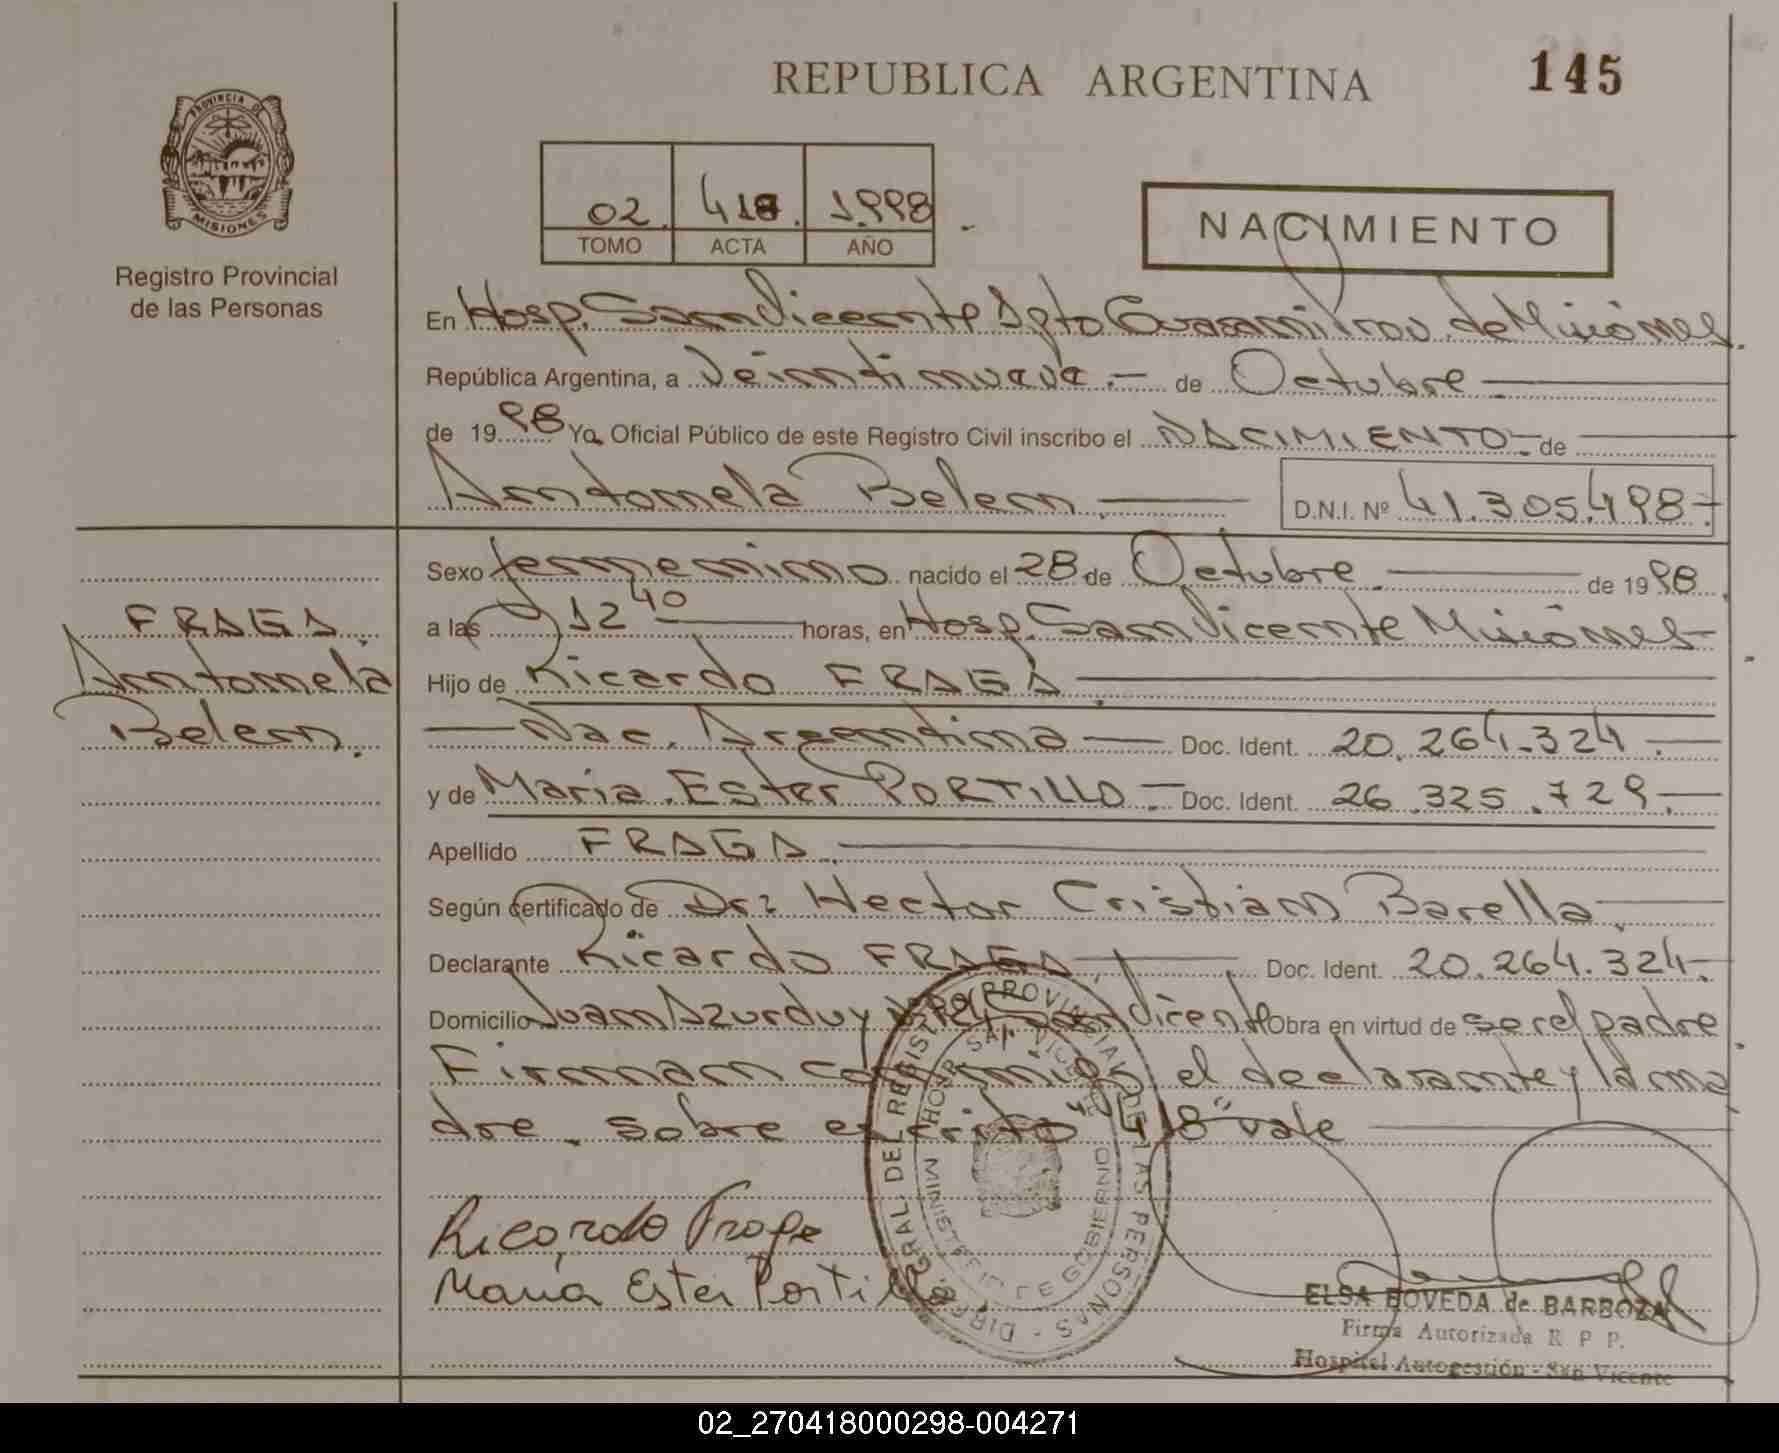 REPUBLICA ARGENTINA
145
PROVINCIA D
MISIONES
Registro Provincial
de las Personas
02. 418. 1.998
TOMO ACTA AÑO
NACIMIENTO
En Hosp. San Vicente Dpto Guaraní Prov. de Misiones.
República Argentina, a Veintinueve.- de Octubre
de 1998 Yo, Oficial Público de este Registro Civil inscribo el NACIMIENTO- de
Antonela Belen.
D.N.I. Nº 41.305.498-
FRAGA.
Antonela
Belen.
Sexo femenino nacido el 28 de Octubre. de 1998.
a las 12 40 horas, en Hosp. San Vicente Misiones-
Hijo de Ricardo FRAGA.
Nac. Argentina Doc. Ident. 20.264.324.
y de Maria Ester PORTILLO- Doc. Ident. 26.325.729.
Apellido FRAGA.
Según certificado de Dr: Hector Cristian Barella.
Declarante Ricardo FRAGA. Doc. Ident. 20.264.324.
Domicilio Juan Azurduy San Vicente Obra en virtud de ser el padre
Firman conmigo el declarante y la ma
dre. sobre escrito "418" vale
Ricardo Fraga
Maria Ester Portillo.
DIREC. GRAL DEL REGISTRO PROVINCIAL DE LAS PERSONAS
HOSP. SAN VICENTE
MINISTERIO DE GOBIERNO
ELSA BOVEDA de BARBOZA
Firma Autorizada R. P. P.
Hospital Autogestión - San Vicente
02_270418000298-004271